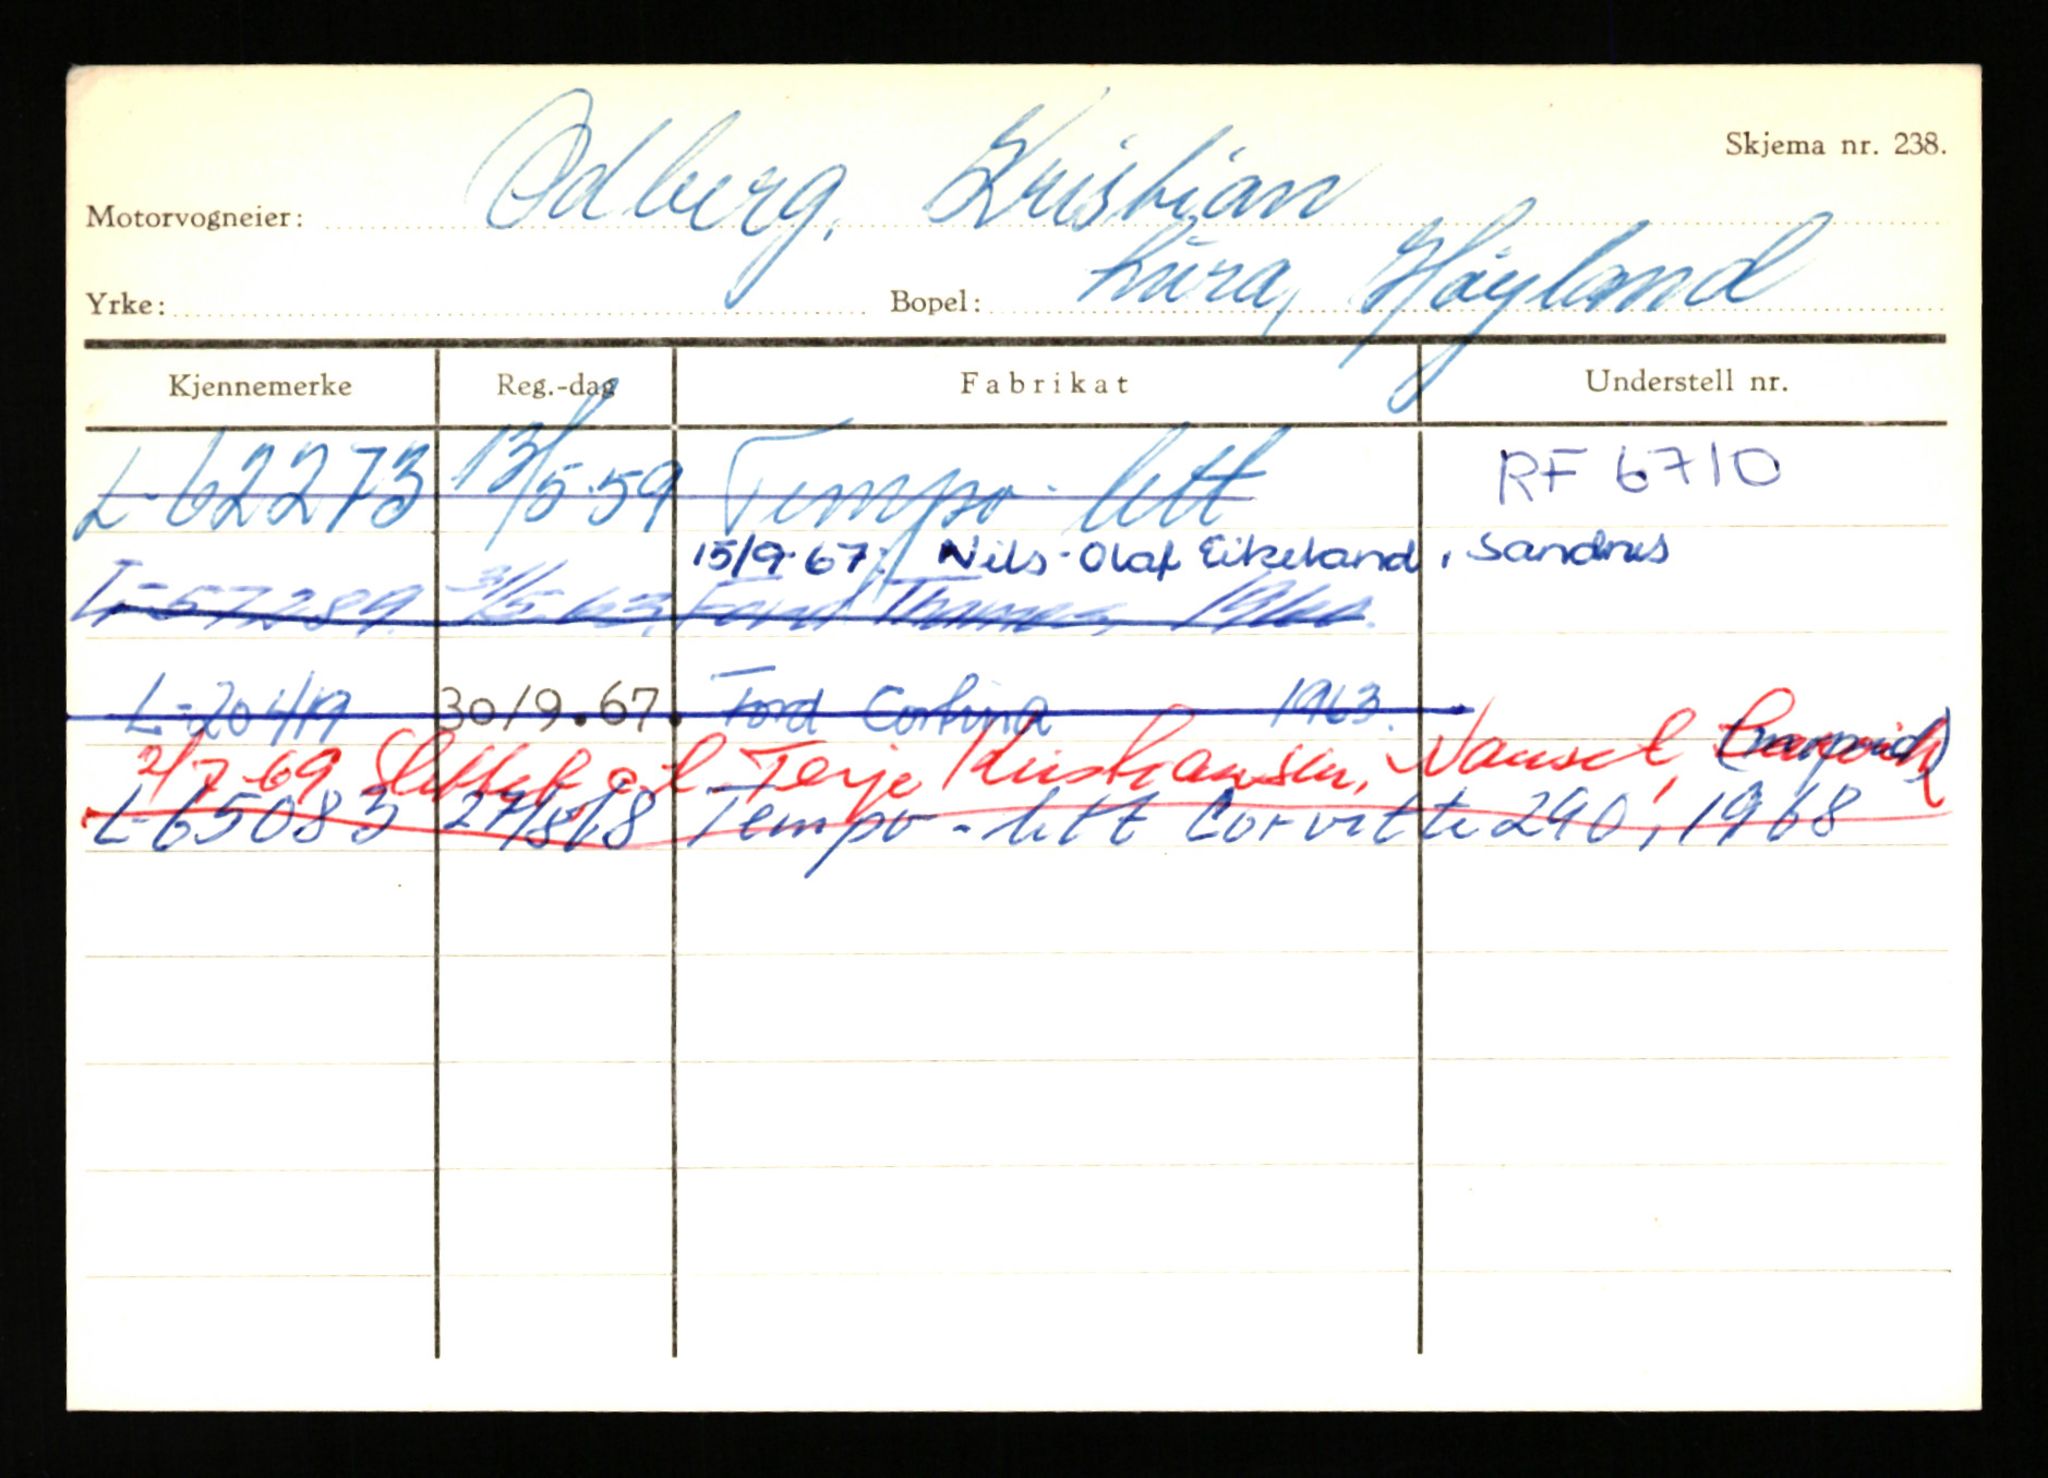 Skjema nr. 238.
Motorvogneier: Odberg, Kristian
Yrke: Bopel: Lura, Høyland
Kjennemerke Reg.-dag Fabrikat Understell nr.
L-62273 13/5-59 Tempo-lett RF 6710
15/9-67: Nils-Olaf Eikeland, Sandnes
L-57289 3/5-63, Ford Thames,
30/9.67. Ford Cortina 1963.
2/7-69 Slettet o.t. Terje Kristiansen,
L-65083 27/8 68 Tempo-lett Corvette 290, 1968